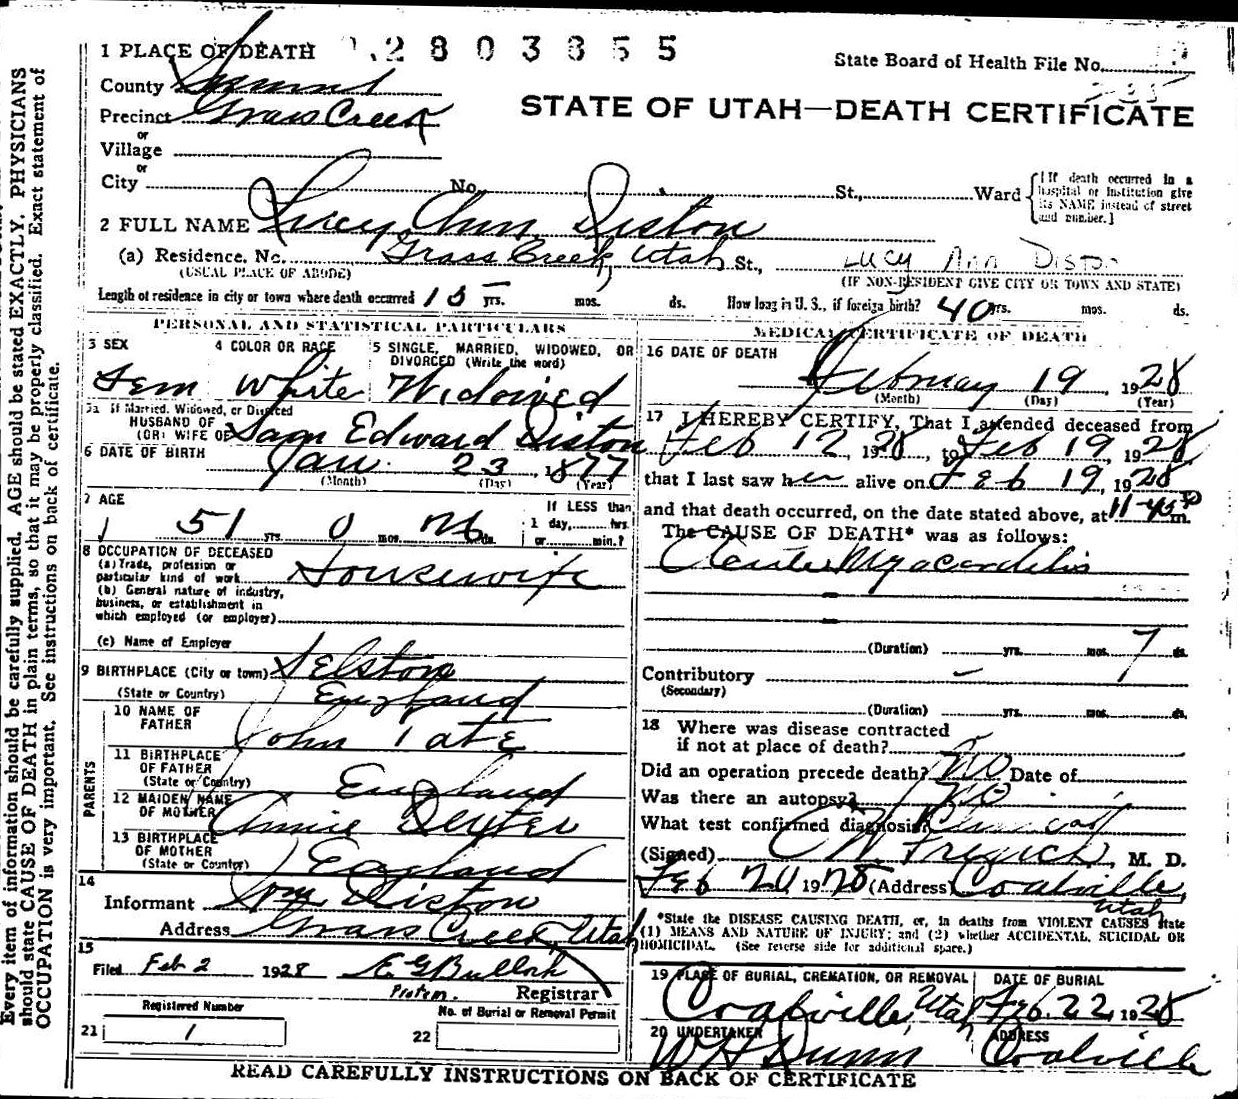 1 PLACE OF DEATH 2803855
State Board of Health File No.
County Summit
STATE OF UTAH—DEATH CERTIFICATE
Precinct Grass Creek
or
Village
or
City No. St., Ward
{[If death occurred in a hospital or institution give its NAME instead of street and number.]
2 FULL NAME Lucy Ann Diston
(a) Residence. No. Grass Creek, Utah St., Lucy Ann Diston
(USUAL PLACE OF ABODE) (IF NON-RESIDENT GIVE CITY OR TOWN AND STATE)
Length of residence in city or town where death occurred 15 yrs. mos. ds. How long in U. S., if foreign birth? 40 yrs. mos. ds.
PERSONAL AND STATISTICAL PARTICULARS
3 SEX 4 COLOR OR RACE 5 SINGLE, MARRIED, WIDOWED, OR
DIVORCED (Write the word)
Fem White Widowed
5a If Married, Widowed, or Divorced
HUSBAND OF
(OR) WIFE OF Sam Edward Diston
6 DATE OF BIRTH Jan. 23 1877
(Month) (Day) (Year)
7 AGE If LESS than
51 yrs. 0 mos. ds. 1 day, hrs.
or min.?
8 OCCUPATION OF DECEASED
(a) Trade, profession or
particular kind of work Housewife
(b) General nature of industry,
business, or establishment in
which employed (or employer)
(c) Name of Employer
9 BIRTHPLACE (City or town) Selston
(State or Country) England
PARENTS
10 NAME OF
FATHER John Tate
11 BIRTHPLACE
OF FATHER
(State or Country) England
12 MAIDEN NAME
OF MOTHER Annie Dexter
13 BIRTHPLACE
OF MOTHER
(State or Country) England
14
Informant Wm Diston
Address Grass Creek, Utah
15
Filed Feb 2 1928 E G Bullock
Protem. Registrar
Registered Number No. of Burial or Removal Permit
21 1 22
MEDICAL CERTIFICATE OF DEATH
16 DATE OF DEATH
February 19, 1928
(Month) (Day) (Year)
17 I HEREBY CERTIFY, That I attended deceased from
Feb 12, 1928, to Feb 19, 1928
that I last saw her alive on Feb 19, 1928
and that death occurred, on the date stated above, at 11-45 P m.
The CAUSE OF DEATH* was as follows:
Acute Myocarditis
(Duration) yrs. mos. 7 ds.
Contributory -
(Secondary)
(Duration) yrs. mos. ds.
18 Where was disease contracted
if not at place of death?
Did an operation precede death? No Date of
Was there an autopsy? No
What test confirmed diagnosis? Clinical
(Signed) M. D.
Feb 20 1928 (Address) Coalville,
Utah
*State the DISEASE CAUSING DEATH, or, in deaths from VIOLENT CAUSES state
(1) MEANS AND NATURE OF INJURY; and (2) whether ACCIDENTAL, SUICIDAL OR
HOMICIDAL. (See reverse side for additional space.)
19 PLACE OF BURIAL, CREMATION, OR REMOVAL DATE OF BURIAL
Coalville, Utah Feb. 22, 1928
20 UNDERTAKER ADDRESS
W H Dunn Coalville
READ CAREFULLY INSTRUCTIONS ON BACK OF CERTIFICATE
Every item of information should be carefully supplied. AGE should be stated EXACTLY. PHYSICIANS
should state CAUSE OF DEATH in plain terms, so that it may be properly classified. Exact statement of
OCCUPATION is very important. See instructions on back of certificate.